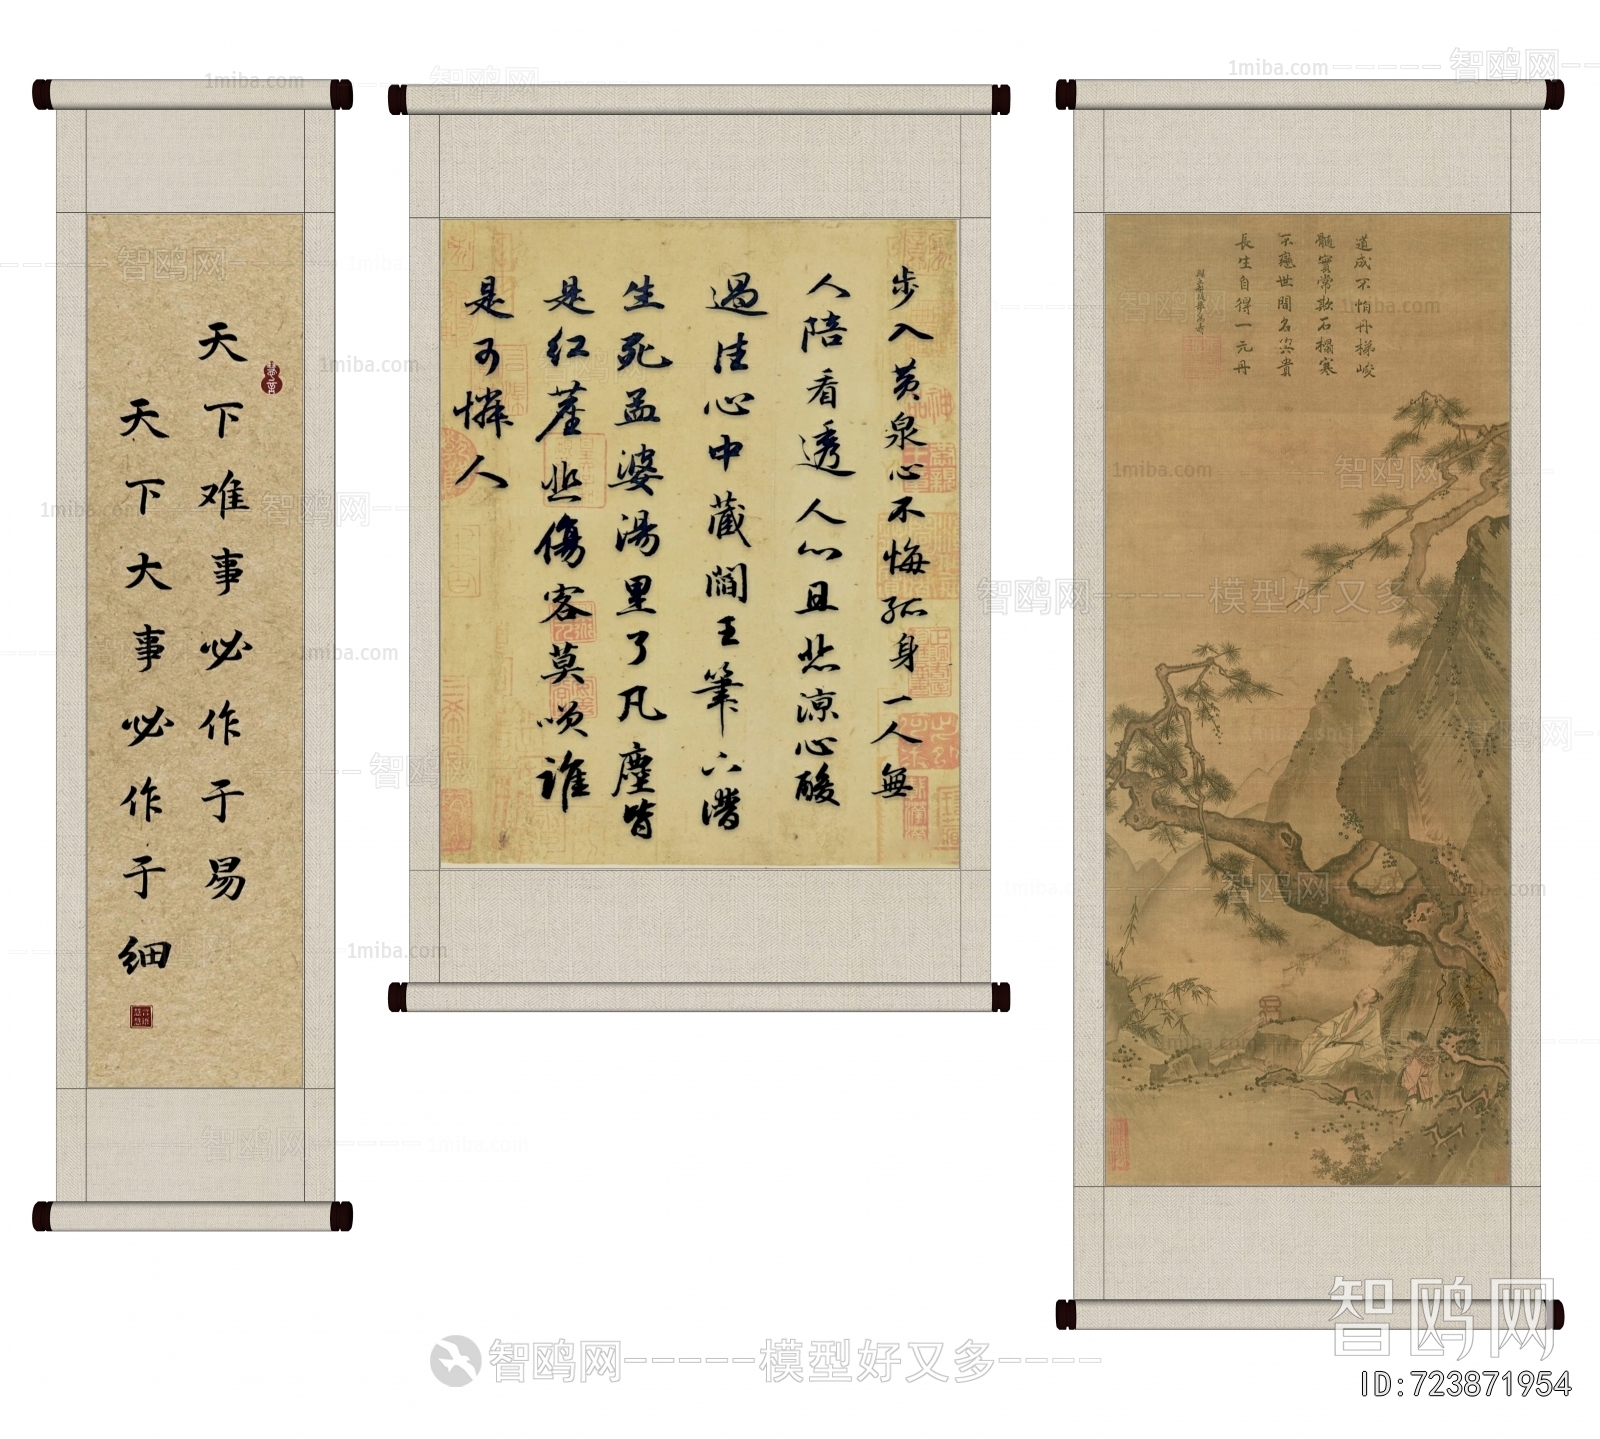 天下难事必作于易
天下大事必作于细
步入黄泉心不悔孤身一人無
人陪看透人心且悲涼心酸
過往心中藏閻王筆下潛
生死孟婆湯里了凡塵皆
是紅塵悲傷客莫嘆誰
是可憐人
道成不怕丹梯峻
髓實常欺石榻寒
不戀世間名與貴
長生自得一元丹
智鸥网-----模型好又多----
智鸥网
ID:723871954
1miba.com